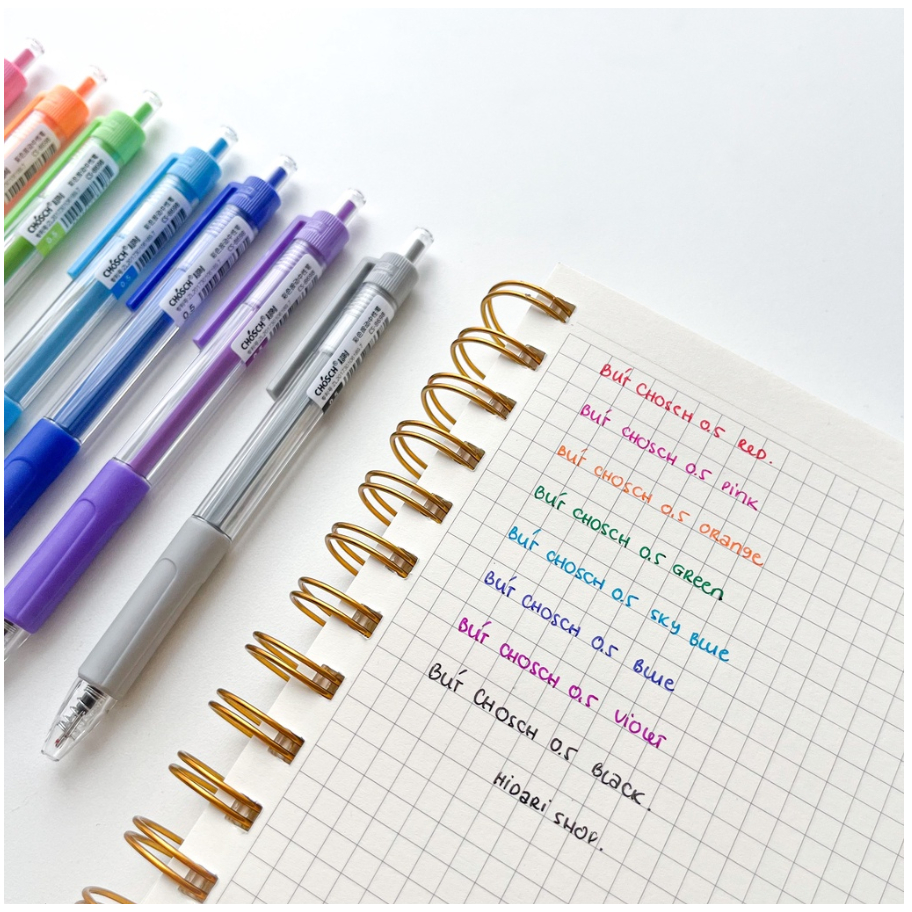 CHOSCH®
0.5
CHOSCH®
0.5
CHOSCH®
0.5
CHOSCH®
CHOSCH®
BÚT CHOSCH 0.5 RED.
BÚT CHOSCH 0.5 PINK
BÚT CHOSCH 0.5 ORANGE
BÚT CHOSCH 0.5 GREEN
BÚT CHOSCH 0.5 SKY BLUE
BÚT CHOSCH 0.5 BLUE
BÚT CHOSCH 0.5 VIOLET
BÚT CHOSCH 0.5 BLACK.
HIDARI SHOP.